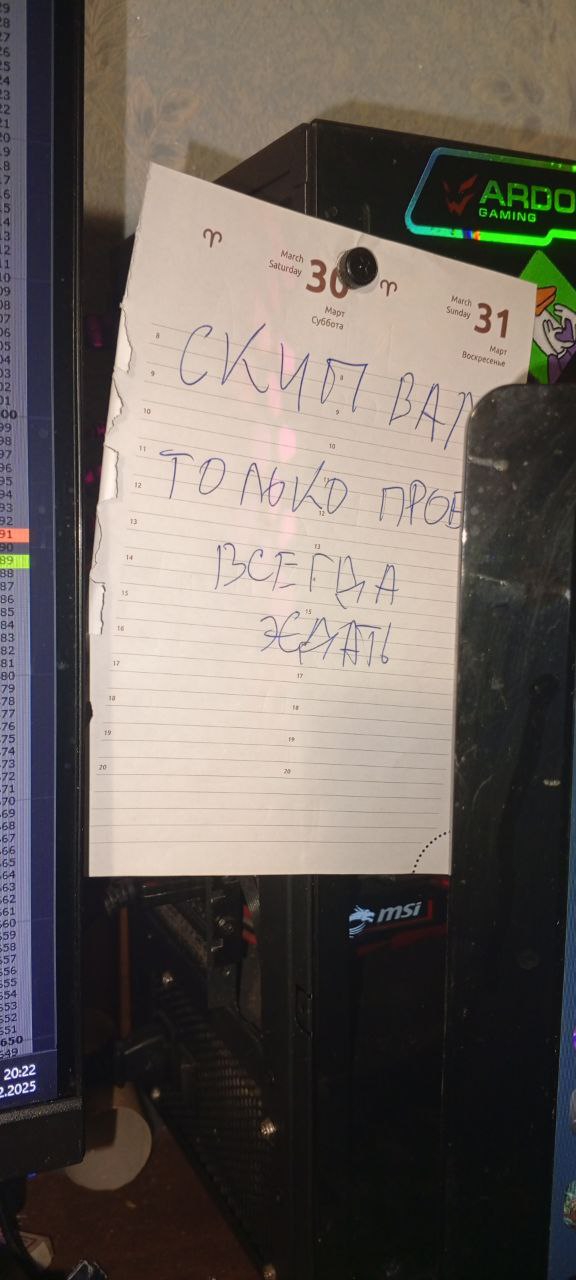 ARDO
GAMING
March
Saturday
30
Март
Суббота
March
Sunday
31
Март
Воскресенье
СКИП ВАЛ
ТОЛЬКО ПРОБ
ВСЕГДА
ЖДАТЬ
8
9
10
11
12
13
14
15
16
17
18
19
20
8
9
10
11
12
13
15
17
18
19
20
msi
91
89
650
649
20:22
2.2025